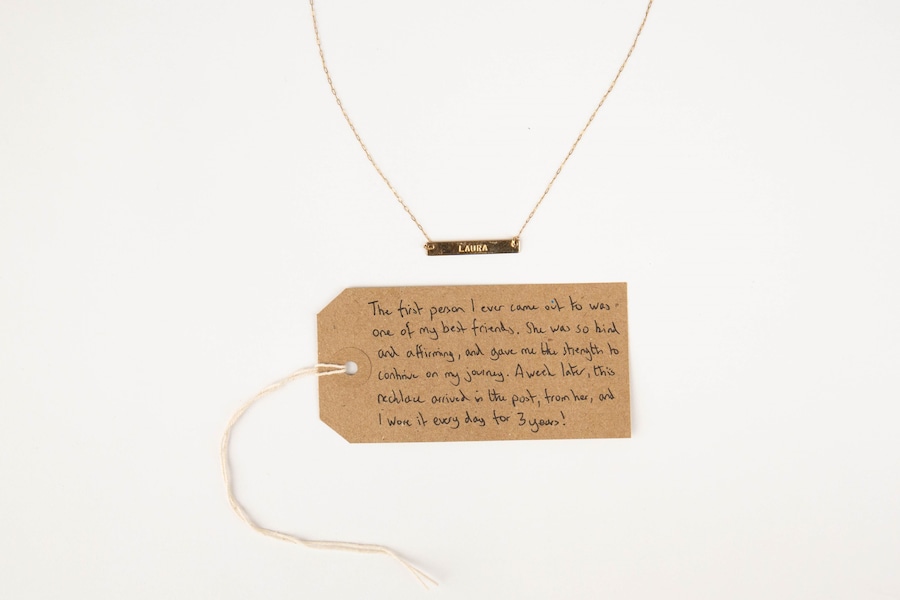 LAURA
The first person I ever came out to was
one of my best friends. She was so kind
and affirming, and gave me the strength to
continue on my journey. A week later, this
necklace arrived in the post, from her, and
I wore it every day for 3 years!